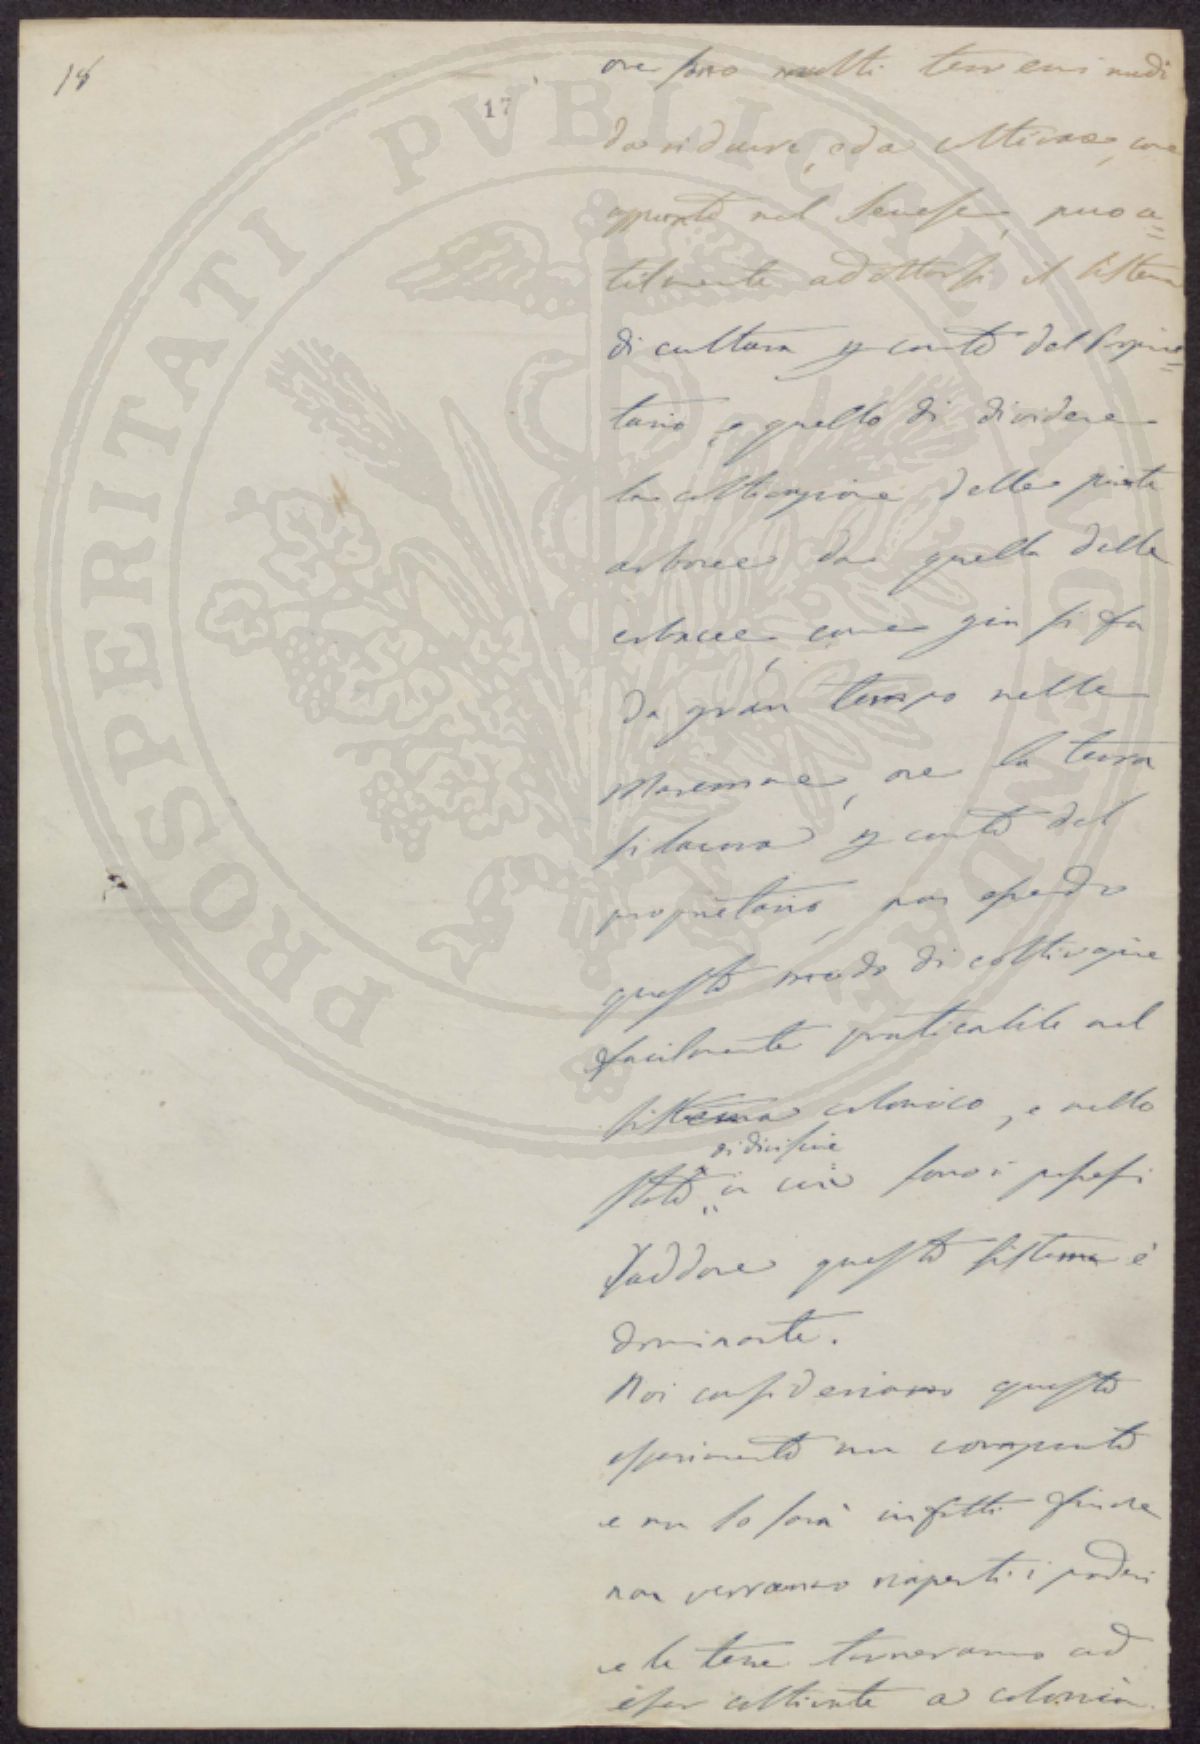 18
17
ove sono molti terreni nudi
da ridurre, e da coltivare, come
appunto nel Senese, può u=
tilmente adottarsi il sistema
di cultura p conto del Proprie=
tario, e quello di dividere
la coltivazione delle piante
arboree da quella delle
erbacee, come già si fa
da gran tempo nelle
Maremme, ove la terra
si lavora p conto del
proprietario, non essendo
questo modo di coltivazione
facilmente praticabile nel
sistema colonico, e nello
di divisione
stato in cui sono i possessi
laddove questo sistema è
dominante.
Noi consideriamo questo
esperimento non compiuto
e non lo sarà infatti finchè
non verranno riaperti i poderi
e le terre torneranno ad
esser coltivate a colonia.
PROSPERITATI PVBLICAE AVGENDAE